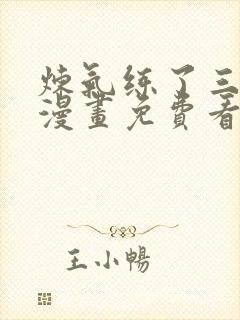 煉氣練了三
漫畫免費看
王小暢